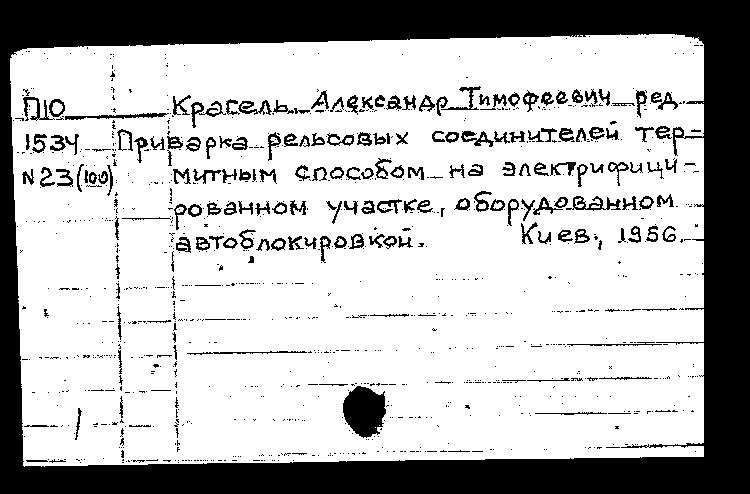 П10 Красель, Александр Тимофеевич ред
1534 Приварка рельсовых соединителей тер-
N23(100) митным способом на электрифици-
рованном участке, оборудованном
автоблокировкой. Киев, 1956.